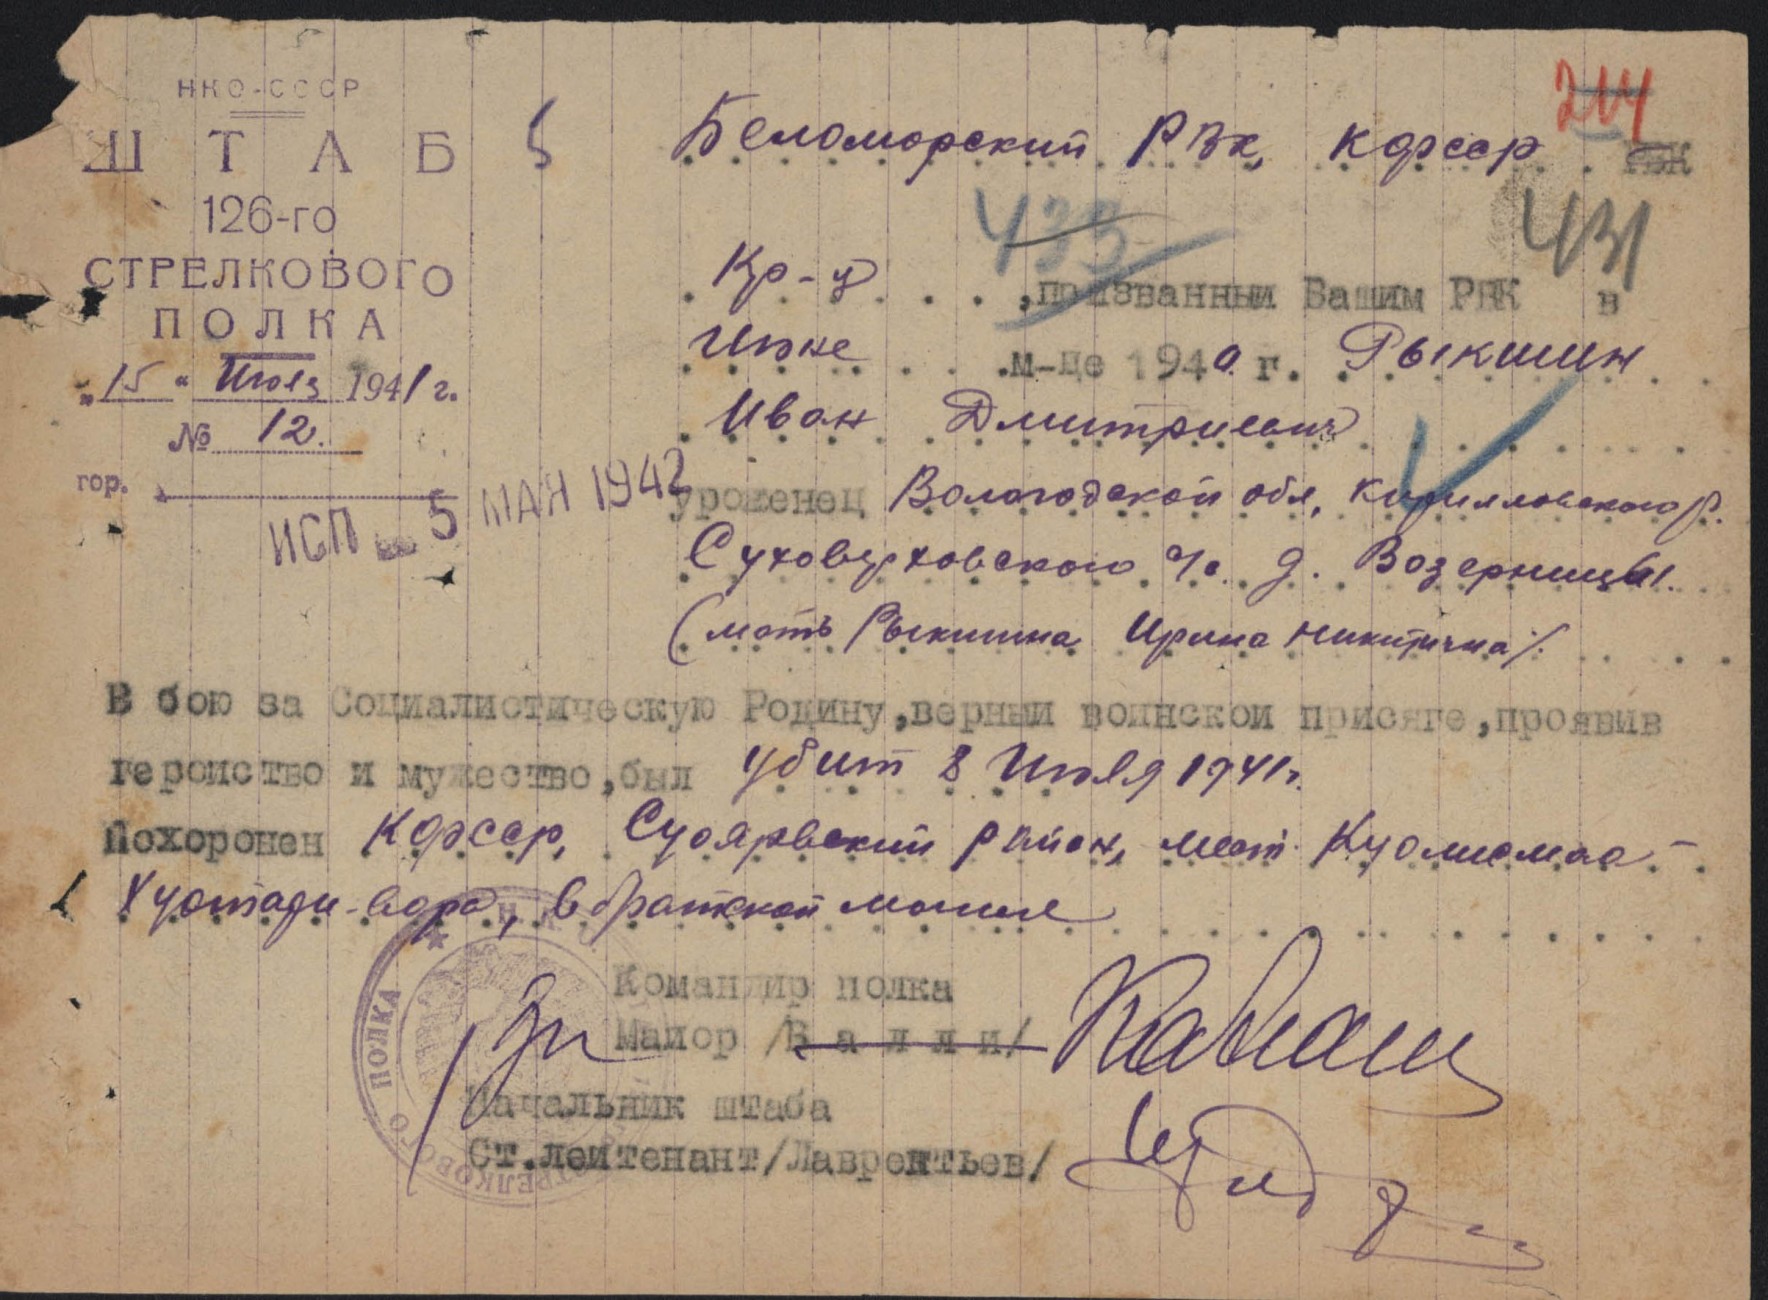 НКО-СССР
ШТАБ
126-го
СТРЕЛКОВОГО
ПОЛКА
„15“ Июля 1941 г.
№ 12.
гор.
ИСП 5 МАЯ 1942
214
Беломорский РВК, КФССР РВК
435
431
Кр-ц ,призванный Вашим РВК в
Июне м-це 1940 г. Рыкшин
Иван Дмитриевич
уроженец Вологодской обл, Кирилловского р.
Суховерховского с/с. д. Возерницы.
(мать Рыкшина Ирина Никитична/.
В бою за Социалистическую Родину,верный воинской присяге,проявив
геройство и мужество,был убит 8 Июля 1941г.
Похоронен КФССР, Суоярвский район, мест. Куолисмаа -
Хуатади-вара, в братской могиле
Командир полка
Майор /Валли/
Начальник штаба
Ст.лейтенант/Лаврентьев/
СТРЕЛКОВОГО ПОЛКА